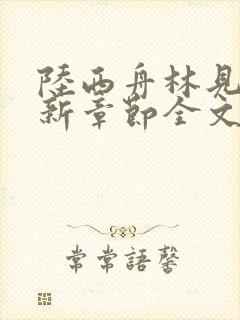 陸西舟林見
新章節全文
常常語馨